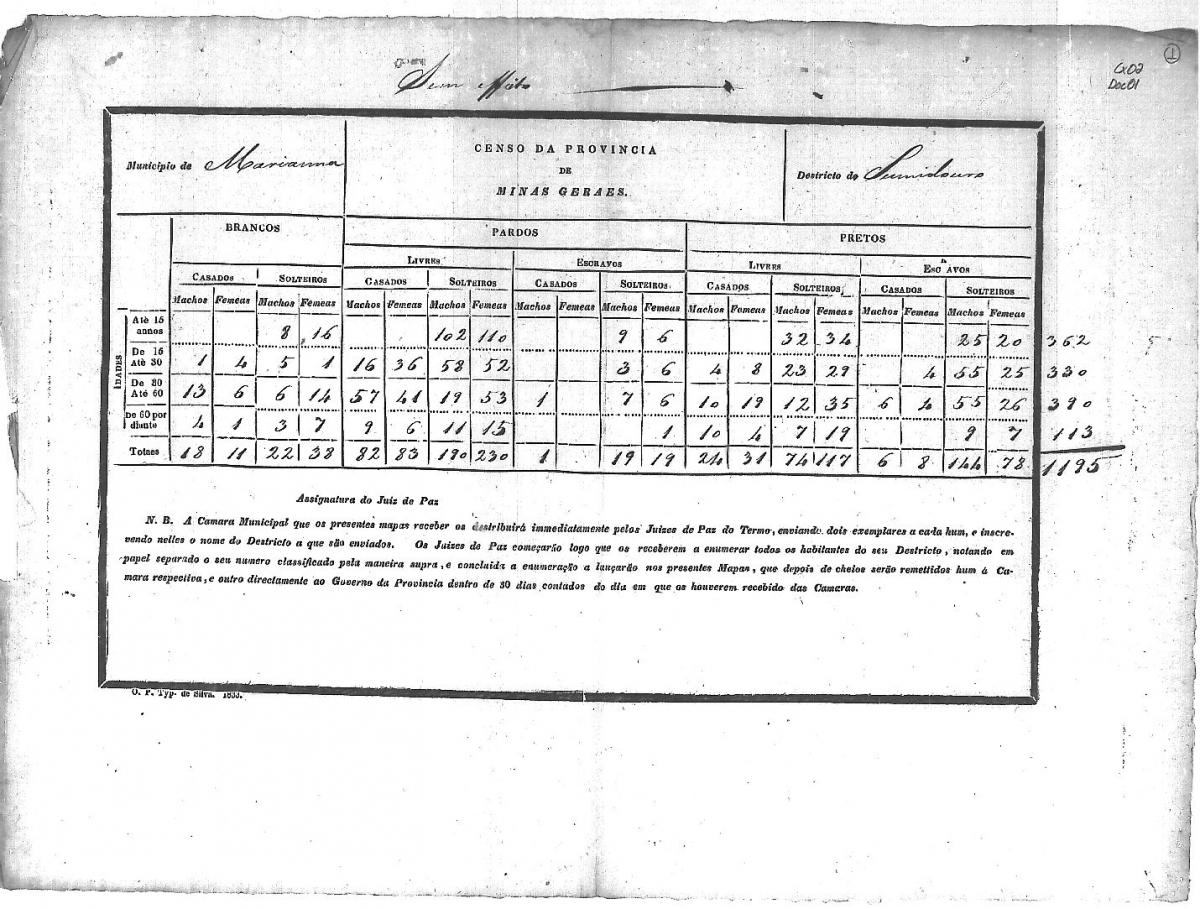 1
Cx02
Doc 01
Sem effeito
Municipio de Marianna
CENSO DA PROVINCIA
DE
MINAS GERAES.
Destricto do Sumidouro
BRANCOS PARDOS PRETOS
LIVRES ESCRAVOS LIVRES ESC AVOS
R
CASADOS SOLTEIROS CASADOS SOLTEIROS CASADOS SOLTEIROS CASADOS SOLTEIROS CASADOS SOLTEIROS
Machos Femeas Machos Femeas Machos Femeas Machos Femeas Machos Femeas Machos Femeas Machos Femeas Machos Femeas Machos Femeas Machos Femeas
IDADES
Atè 15 annos 8 16 102 110 9 6 32 34 25 20 362
De 15 Atè 30 1 4 5 1 16 36 58 52 3 6 4 8 23 29 4 55 25 330
De 30 Até 60 13 6 6 14 57 41 19 53 1 7 6 10 19 12 35 6 4 55 26 390
De 60 por diante 4 1 3 7 9 6 11 15 1 10 4 7 19 9 7 113
Totaes 18 11 22 38 82 83 190 230 1 19 19 24 31 74 117 6 8 144 78 1195
Assignatura do Juiz de Paz
N. B. A Camara Municipal que os presentes mapas receber os destribuirá immediatamente pelos Juizes de Paz do Termo, enviando dois exemplares a cada hum, e inscre-
vendo nelles o nome do Destricto a que são enviados. Os Juizes de Paz começarão logo que os receberem a enumerar todos os habitantes do seu Destricto, notando em
papel separado o seu numero classificado pela maneira supra, e concluida a enumeração a lançarão nos presentes Mapas, que depois de cheios serão remettidos hum á Ca-
mara respectiva, e outro directamente ao Governo da Provincia dentro de 30 dias contados do dia em que os houverem recebido das Camaras.
O. P. Typ. de Silva. 1833.